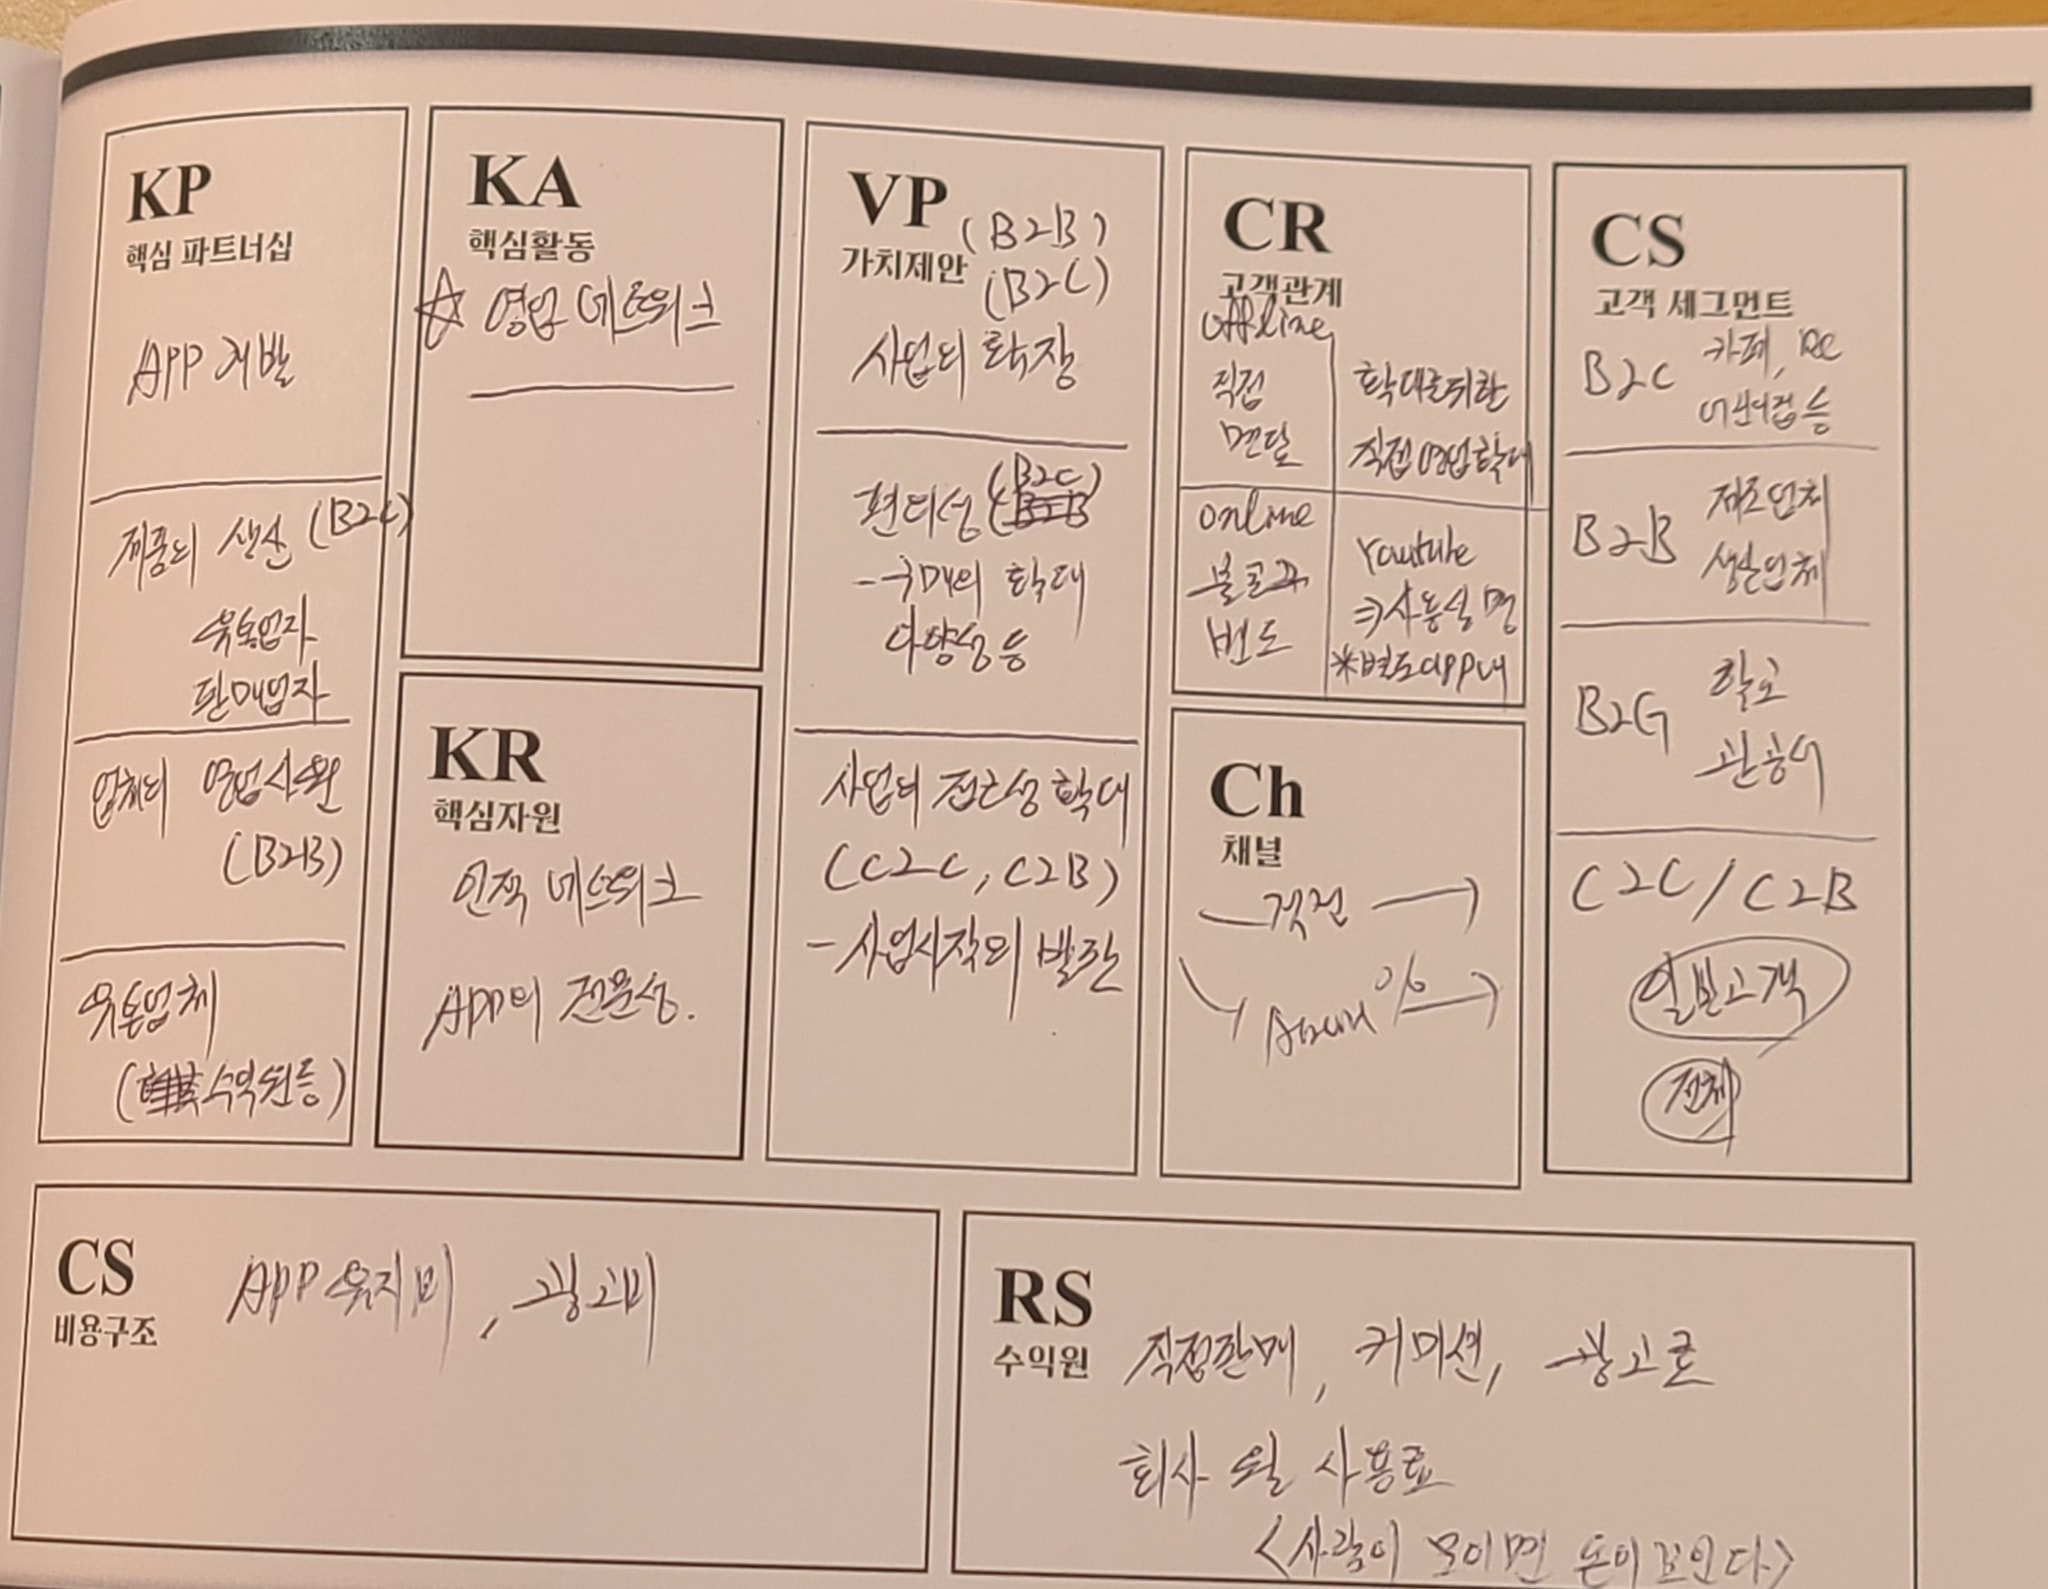 KP
핵심 파트너십
APP 개발
제품의 생산 (B2C)
유통업자
판매업자
업체의 영업사원
(B2B)
유통업체
(수익원등)
KA
핵심활동
☆ 영업 네트워크
KR
핵심자원
인적 네트워크
APP의 전문성.
VP
가치제안
(B2B)
(B2C)
사업의 확장
편의성 (B2C)
- 구매의 확대
다양성 등
사업의 접근성 확대
(C2C, C2B)
- 사업시작의 발판
CR
고객관계
offline
직접
전달
확대를위한
직접영업확대
online
블로그
밴드
Youtube
⇒사용설명
*별도app내
Ch
채널
직접 →
%
CS
고객 세그먼트
B2C 카페,
어린이집 등
B2B 제조업체
생산업체
B2G 학교
관공서
C2C / C2B
일반고객
전체
CS
비용구조
APP 유지비, 광고비
RS
수익원
직접판매, 커미션, 광고료
회사 월 사용료
<사람이 모이면 돈이 보인다>